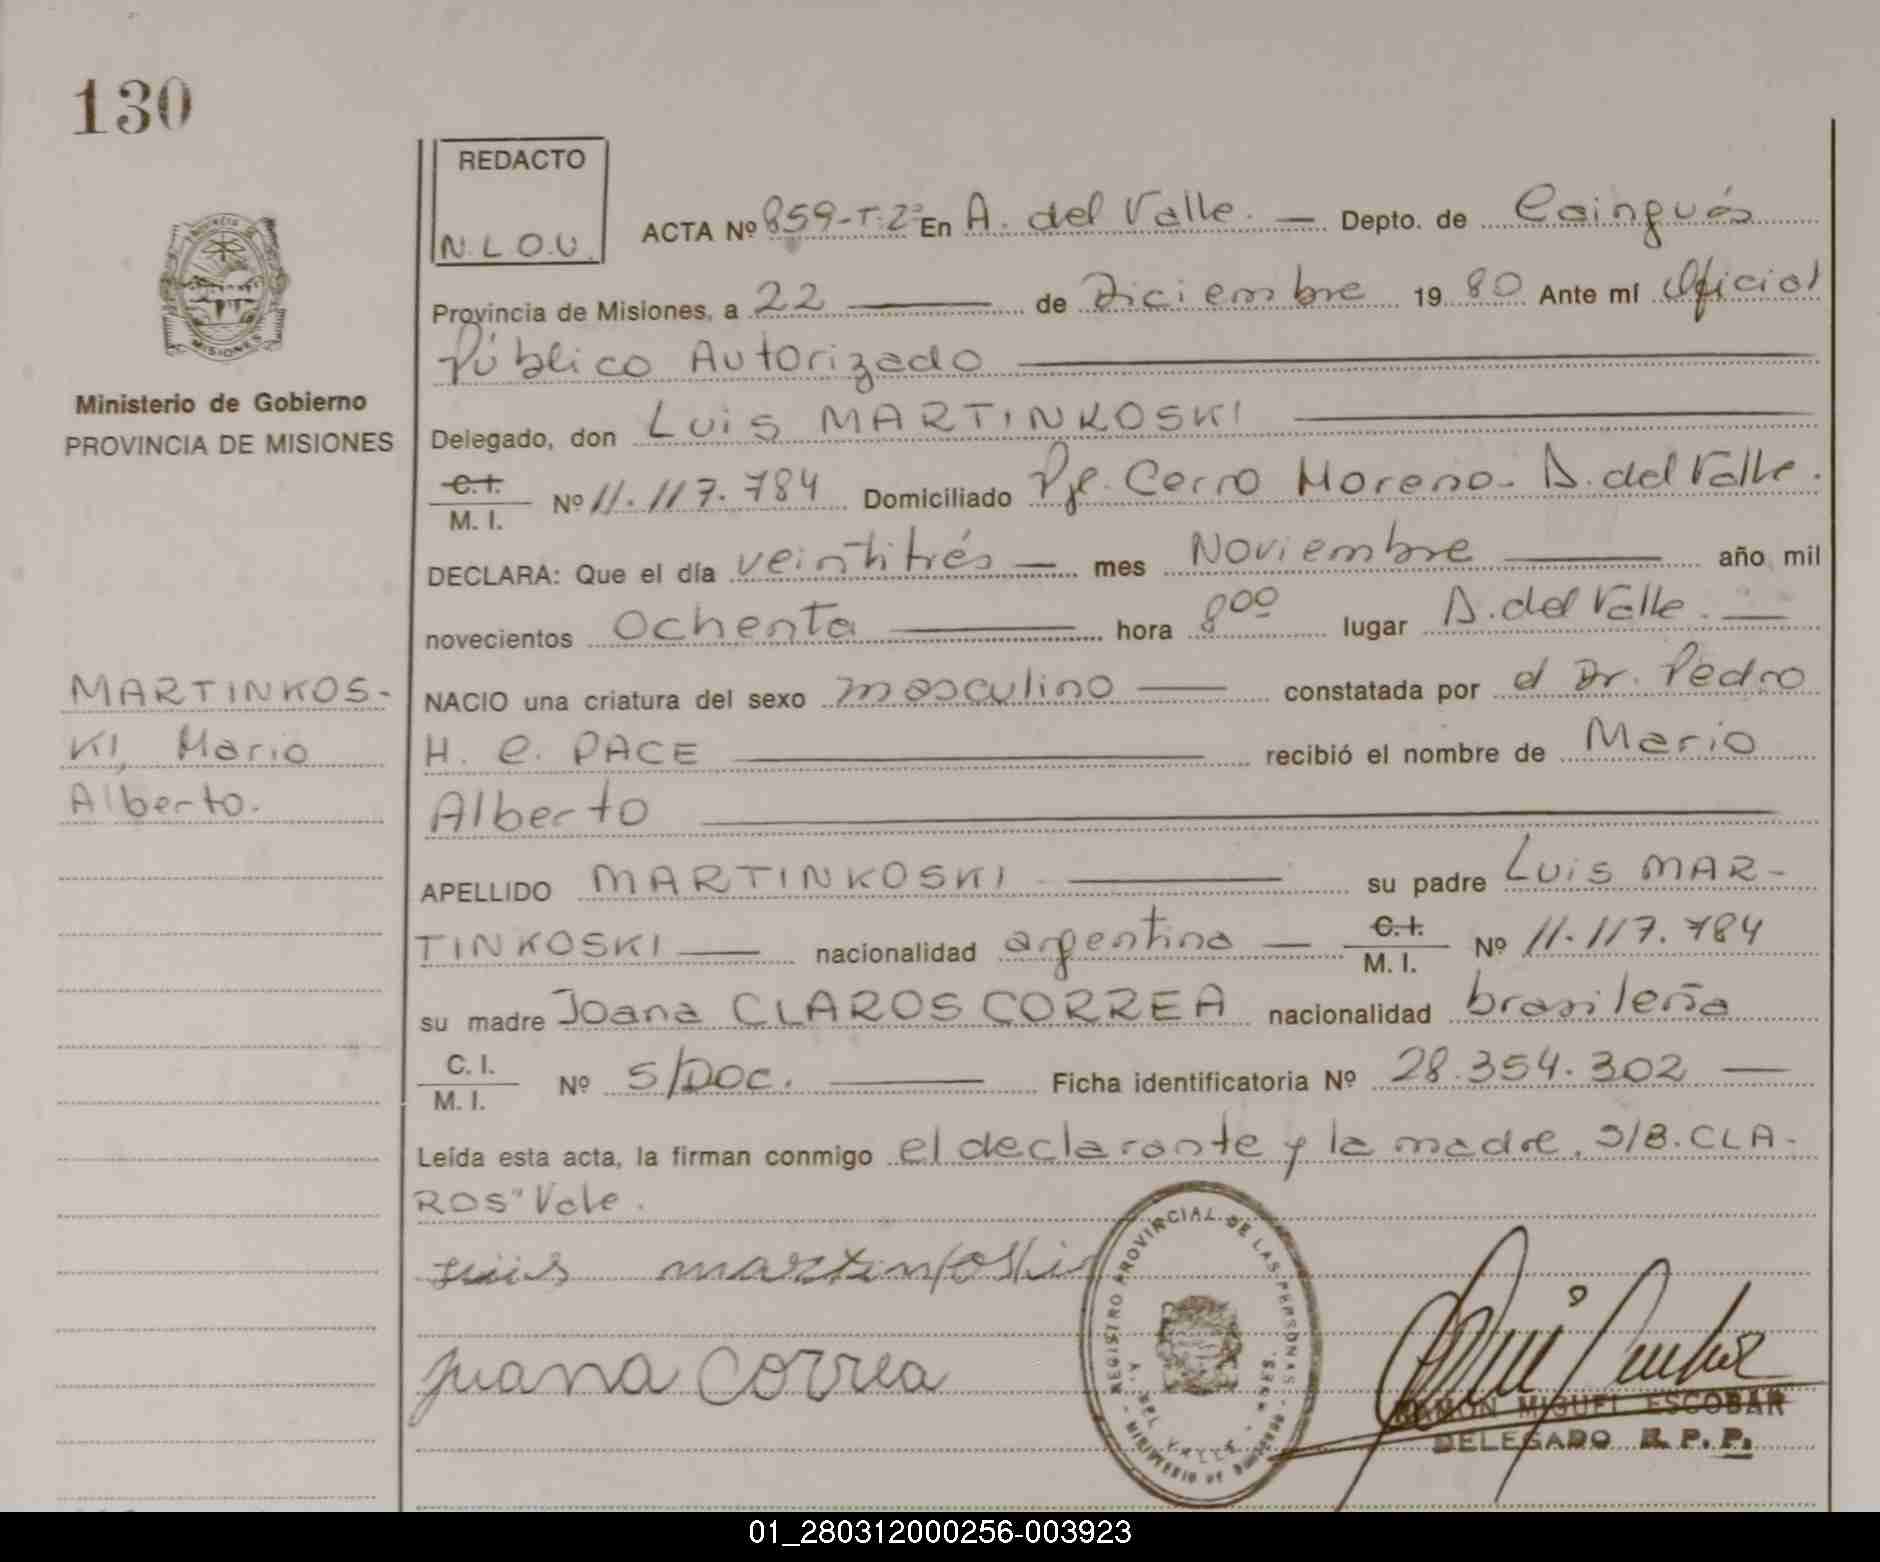 130
REDACTO
N.L.O.U.
ACTA Nº 859-T:2º En A. del Valle. — Depto. de Cainguás
Provincia de Misiones, a 22 — de Diciembre 1980 Ante mí Oficial
Público Autorizado
Ministerio de Gobierno
PROVINCIA DE MISIONES
Delegado, don Luis MARTINKOSKI
C.I. M.I. Nº 11.117.784 Domiciliado Pje. Cerro Moreno- A. del Valle.
DECLARA: Que el día veintitrés — mes Noviembre — año mil
novecientos Ochenta — hora 8ºº lugar A. del Valle. —
MARTINKOS-
KI, Mario
Alberto.
NACIO una criatura del sexo masculino — constatada por el Dr. Pedro
H. C. PACE — recibió el nombre de Mario
Alberto
APELLIDO MARTINKOSKI — su padre Luis MAR-
TINKOSKI — nacionalidad argentina — C.I. M.I. Nº 11.117.784
su madre Joana CLAROS CORREA nacionalidad brasileña
C.I. M.I. Nº S/DOC. — Ficha identificatoria Nº 28.354.302 —
Leída esta acta, la firman conmigo el declarante y la madre. S/B. CLA-
ROS" Vale.
Luis martinkoski
Juana Correa
REGISTRO PROVINCIAL DE LAS PERSONAS
A. DEL VALLE
MINISTERIO DE GOBIERNO
RAMON MIGUEL ESCOBAR
DELEGADO R.P.P.
01_280312000256-003923